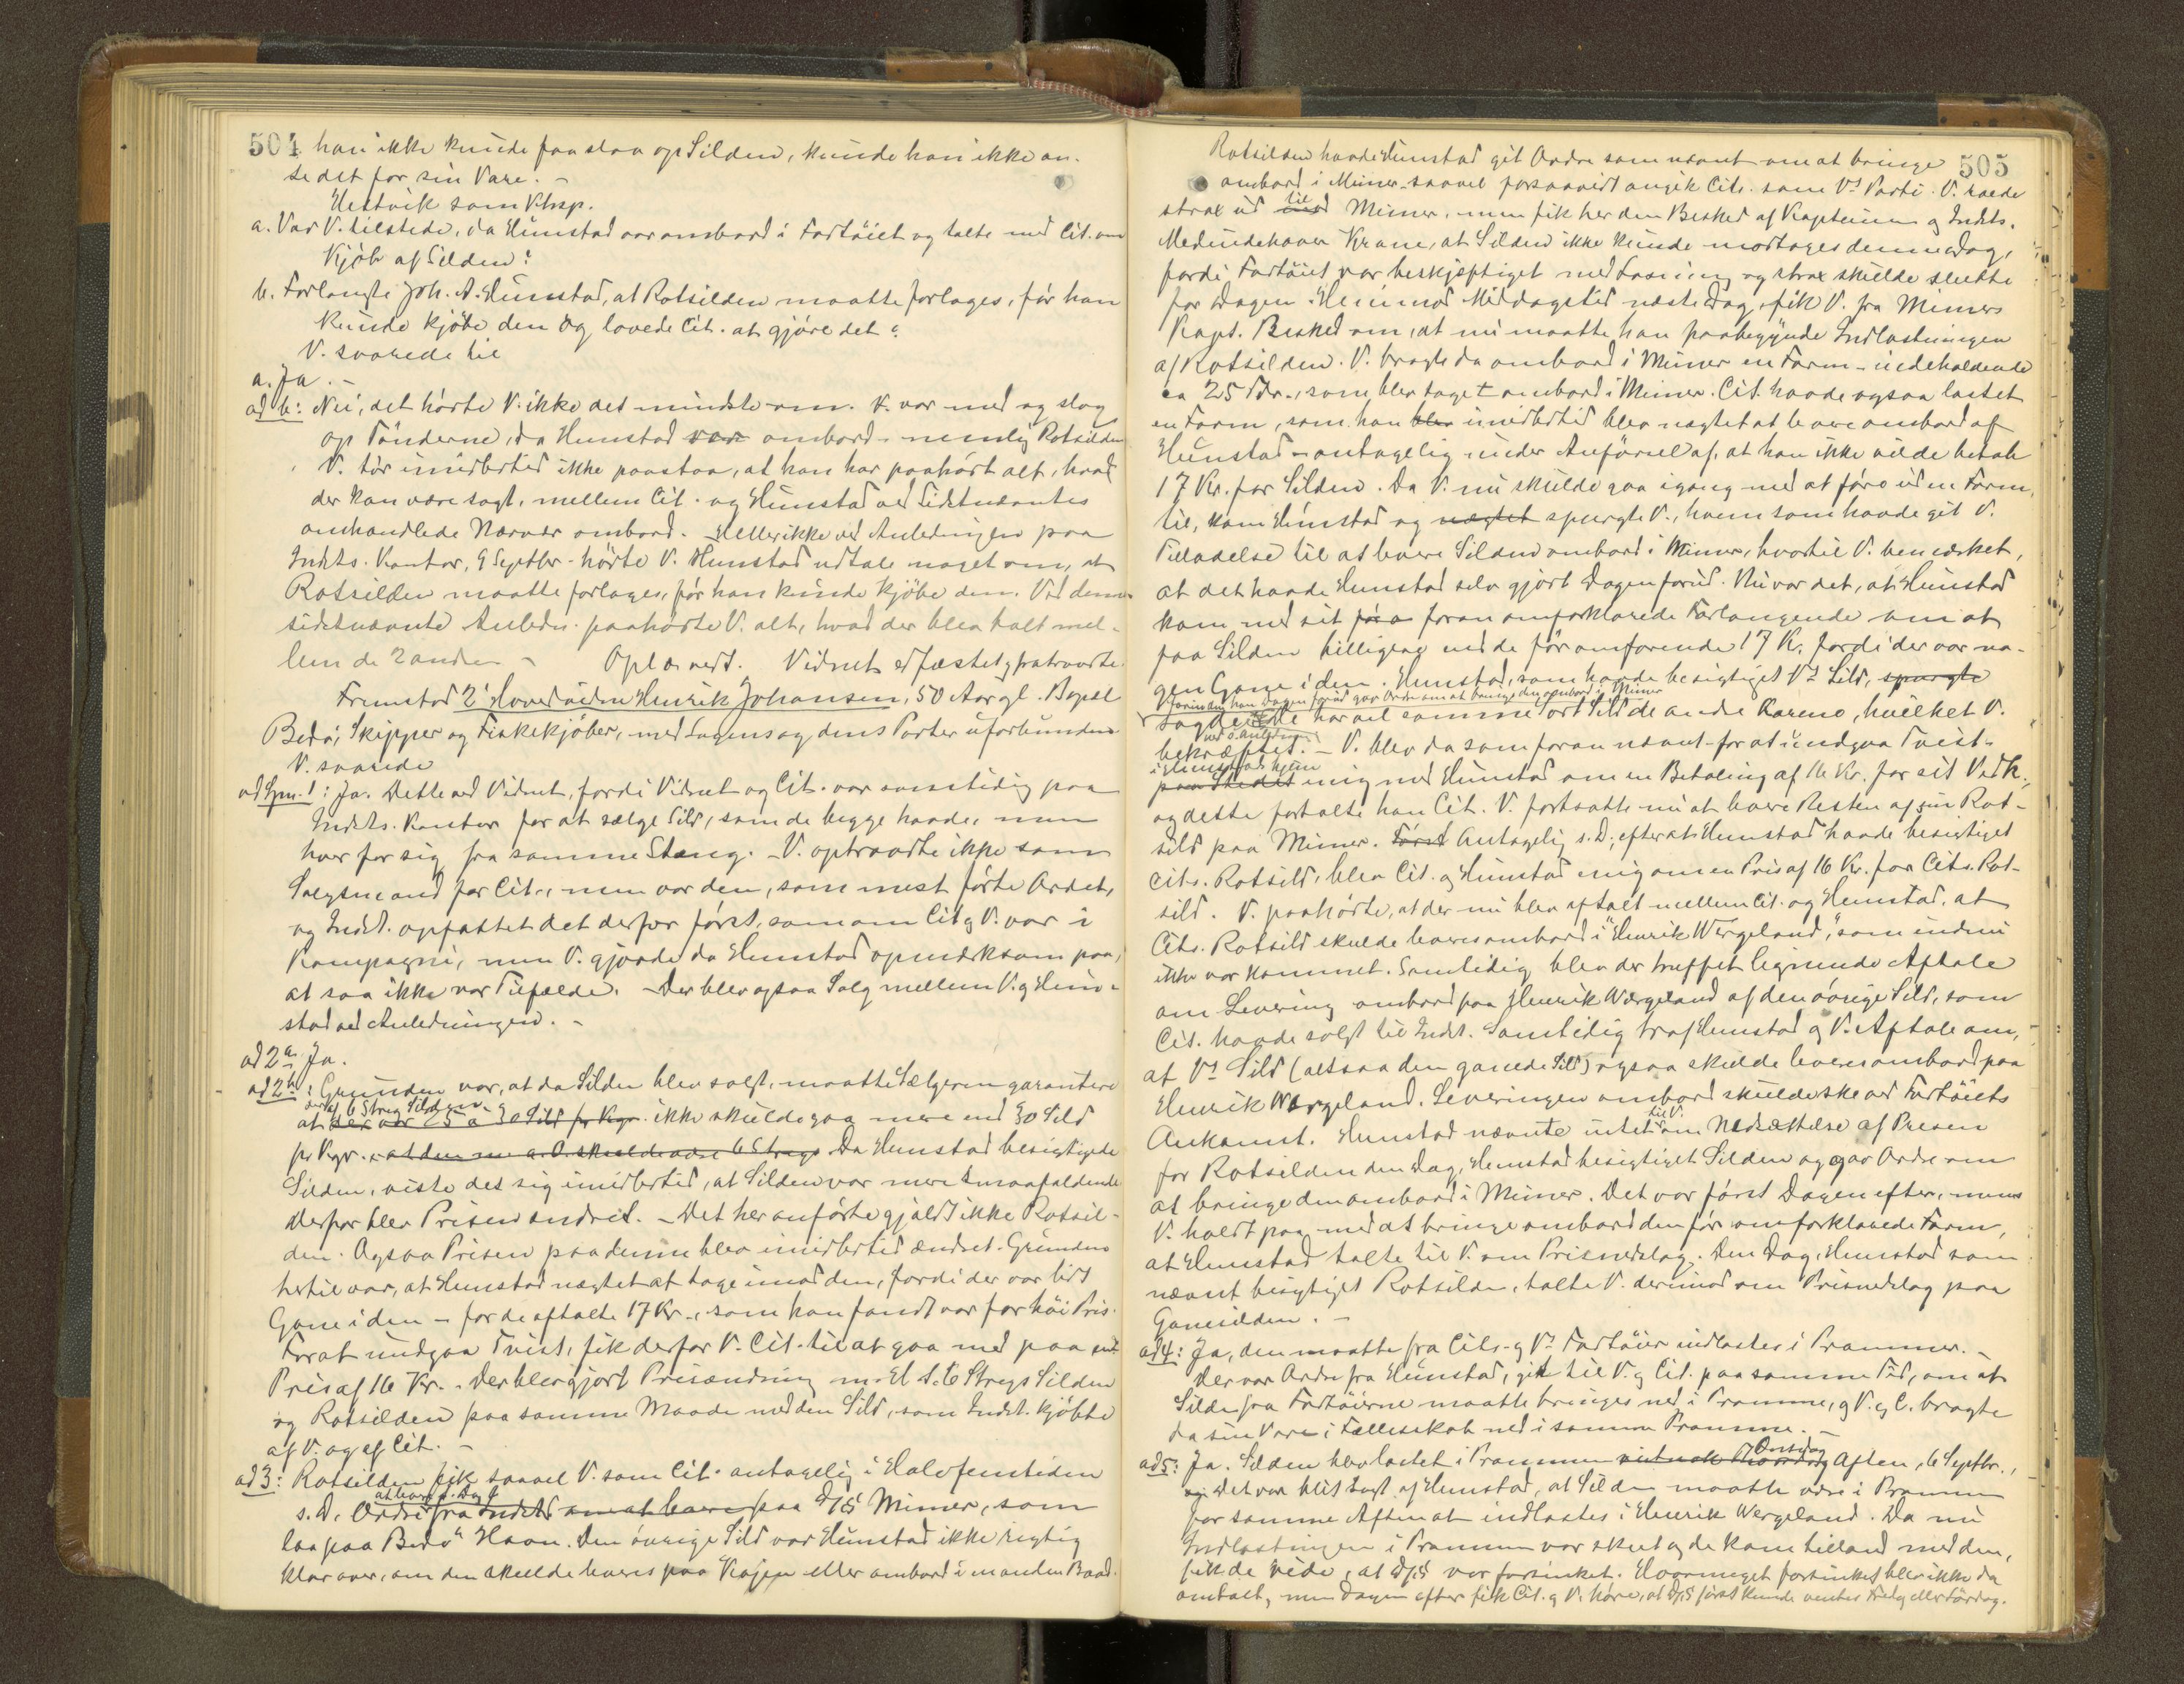 504 han ikke kunde faa slaa op Silden, kunde han ikke an-
se det for sin Vare. -
Hestvik som Ktsp.
a. Var V. tilstede, da Hunstad var ombord i Fartöiet og talte med Cit. om
Kjöb af Silden?
b. Forlangte Joh. A. Hunstad, at Rotsilden maatte forlages, för han
kunde kjöbe den og lovede Cit. at gjöre det?
V. svarede til
a. Ja. -
ad b: Nei, det hörte V. ikke det mindste om. V. var med og slog
op Tönderne, da Hunstad var ombord - nemlig Rotsilden
V. tör imidlertid ikke paastaa, at han har paahört alt, hvad
der kan være sagt, mellem Cit. og Hunstad ved Sidstnævntes
omhandlede Nærvær ombord. - Heller ikke ved Anledningen paa
Indsts. Kontor, 9 Septbr. hörte V. Hunstad udtale noget om, at
Rotsilden maatte forlages, för han kunde kjöbe den. Ved denne
sidstnævnte Anledn. paahörte V. alt, hvad der blev talt mel-
lem de 2 andre - Oplæst, vedt. Vidnet edfæstet, fratraadte.
Fremstod 2' Hovedvidne Henrik Johansen, 50 Aar gl. Bopæl
Bodö, Skipper og Fiskekjöber, med Sagens og dens Parter uforbunden
V. svarede
ad Spm. 1: Ja. Dette ved Vidnet, fordi Vidnet og Cit. var samtidig paa
Indsts. Kontor for at sælge Sild, som de begge havde, men
hver for sig fra samme Stæng. - V. optraadte ikke som
Salgsmand for Cit., men var den, som mest förte Ordet,
og Indst. opfattet det derfor först, som om Cit. og V. var i
Kompagni, men V. gjorde da Hunstad opmærksom paa,
at saa ikke var Tilfælde. - Der blev ogsaa Salg mellem V. og Hun-
stad ved Anledningen. -
ad 2a Ja.
ad 2b: Grunden var, at da Silden blev solgt, maatte Sælgeren garantere
der af 6 Streg Silden
at der var 25 a 30 Sild pr Kgr. ikke skulde gaa mere end 30 Sild
pr Kgr. at den m. a. O. skulde være 6 Streg Da Hunstad besigtigede
Silden, viste det sig imidlertid, at Silden var mere smaafaldende
derfor blev Prisen ændret. - Det her anförte gjaldt ikke Rotsil-
den. Ogsaa Prisen paa denne blev imidlertid ændret. Grunden
hertil var, at Hunstad nægtet at tage imod den, fordi der var lidt
Gane i den - for de aftalte 17 Kr., som han fandt var for höi Pris.
For at undgaa Tvist, fik derfor V. Cit. til at gaa med paa en
Pris af 16 Kr. - Der blev gjort Prisændring m. H. t. 6 Stregs Silden
og Rotsilden paa samme Maade med den Sild, som Indst. kjöbte
af V. og af Cit. -
ad 3: Rotsilden fik saavel V. som Cit. antagelig i Halvfemtiden
at bringe s. Dag
s. D. Ordre fra Indst. om at levere paa D/S Mimer, som
laa paa Bodö Havn. Den övrige Sild var Hunstad ikke rigtig
klar over, om den skulde leveres paa Kajen eller ombord i en anden Baad.
505
Rotsilden havde Hunstad git Ordre som nævnt om at bringe
ombord i Mimer - saavel forsaavidt angik Cits. som V's Parti. V. roede
strax ud til Mimer, men fik her den Besked af Kapteinen og Indsts.
Medindehaver Krane, at Silden ikke kunde modtages denne Dag,
fordi Fartöiet var beskjæftiget med Losning og strax skulde slutte
for Dagen. Henimod Middagstid næste Dag, fik V. fra Mimers
Kapt. Besked om, at nu maatte han paabegynde Indlastningen
af Rotsilden. V. bragte da ombord i Mimer en Farm - indeholdende
ca 25 Tdr., som blev taget ombord i Mimer. Cit. havde ogsaa lastet
en Farm, som han blev imidlertid blev nægtet at levere ombord af
Hunstad - antagelig under Anförsel af, at han ikke vilde betale
17 Kr. for Silden. Da V. nu skulde gaa igang med at före ud en Farm
til, kom Hunstad og nægtet spurgte V., hvem som havde git V.
Tilladelse til at levere Silden ombord i Mimer, hvortil V. bemærket,
at det havde Hunstad selv gjort Dagen forud. Nu var det, at Hunstad
kom med sit foran omforklarede Forlangende om at
faa Silden billigere end de för omforenede 17 Kr. fordi der var no-
gen Gane i den. Hunstad, som havde besigtiget V's Sild, spurgte
forinden han Dagen forud gav Ordre om at bringe den ombord i Mimer
sagde: De har vel samme Sort Sild de andre Karene, hvilket V.
ved s. Anledn.
bekræftet. - V. blev da som foran nævnt - for at undgaa Tvist -
i Hunstads Hjem
paa Stedet enig med Hunstad om en Betaling af 16 Kr. for sit Vedk.,
og dette fortalte han Cit. V. fortsatte nu at levere Resten af sin Rot-
sild paa Mimer. Först Antagelig s. D., efterat Hunstad havde besigtiget
Cits. Rotsild, blev Cit. og Hunstad enig om en Pris af 16 Kr. for Cits. Rot-
sild. V. paahörte, at der nu blev aftalt mellem Cit. og Hunstad, at
Cits. Rotsild skulde leveres ombord i "Henrik Wergeland", som endnu
ikke var kommet. Samtidig blev der truffet lignende Aftale
om Levering ombord paa Henrik Wergeland af den övrige Sild, som
Cit. havde solgt til Indst. Samtidig traf Hunstad og V. Aftale om,
at V's Sild (altsaa den ganede Sild) ogsaa skulde leveres ombord paa
Henrik Wergeland. Leveringen ombord skulde ske ved Fartöiets
til V.
Ankomst. Hunstad nævnte intet om Nedsættelse af Prisen
for Rotsilden den Dag, Hunstad besigtiget Silden og gav Ordre om
at bringe den ombord i Mimer. Det var först Dagen efter, mens
V. holdt paa med at bringe ombord den för omforklarede Farm,
at Hunstad talte til V. om Prisnedslag. Den Dag, Hunstad som
nævnt besigtiget Rotsilden, talte V. derimod om Prisnedslag paa
Ganesilden. -
ad 4: Ja, den maatte fra Cits. og V's Fartöier indlastes i Prammer. -
Der var Ordre fra Hunstad, git til V. og Cit. paa samme Tid, om at
Silden fra Fartöierne maatte bringes ned i Pramme, og V. og C. bragte
da sin Vare i Fællesskab ned i samme Pramme. -
Onsdag
ad 5: Ja. Silden blev lastet i Prammen Aften, 6 Septbr.,
og Det var blit sagt af Hunstad, at Silden maatte være i Prammen
for samme Aften at indlastes i Henrik Wergeland. Da nu
Indlastningen i Prammen var skeet og de kom tilland med den,
fik de vide, at D/S var forsinket. Hvormeget forsinket blev ikke da
omtalt, men Dagen efter fik Cit. og V. höre, at D/S först kunde ventes Fredag eller Lördag.